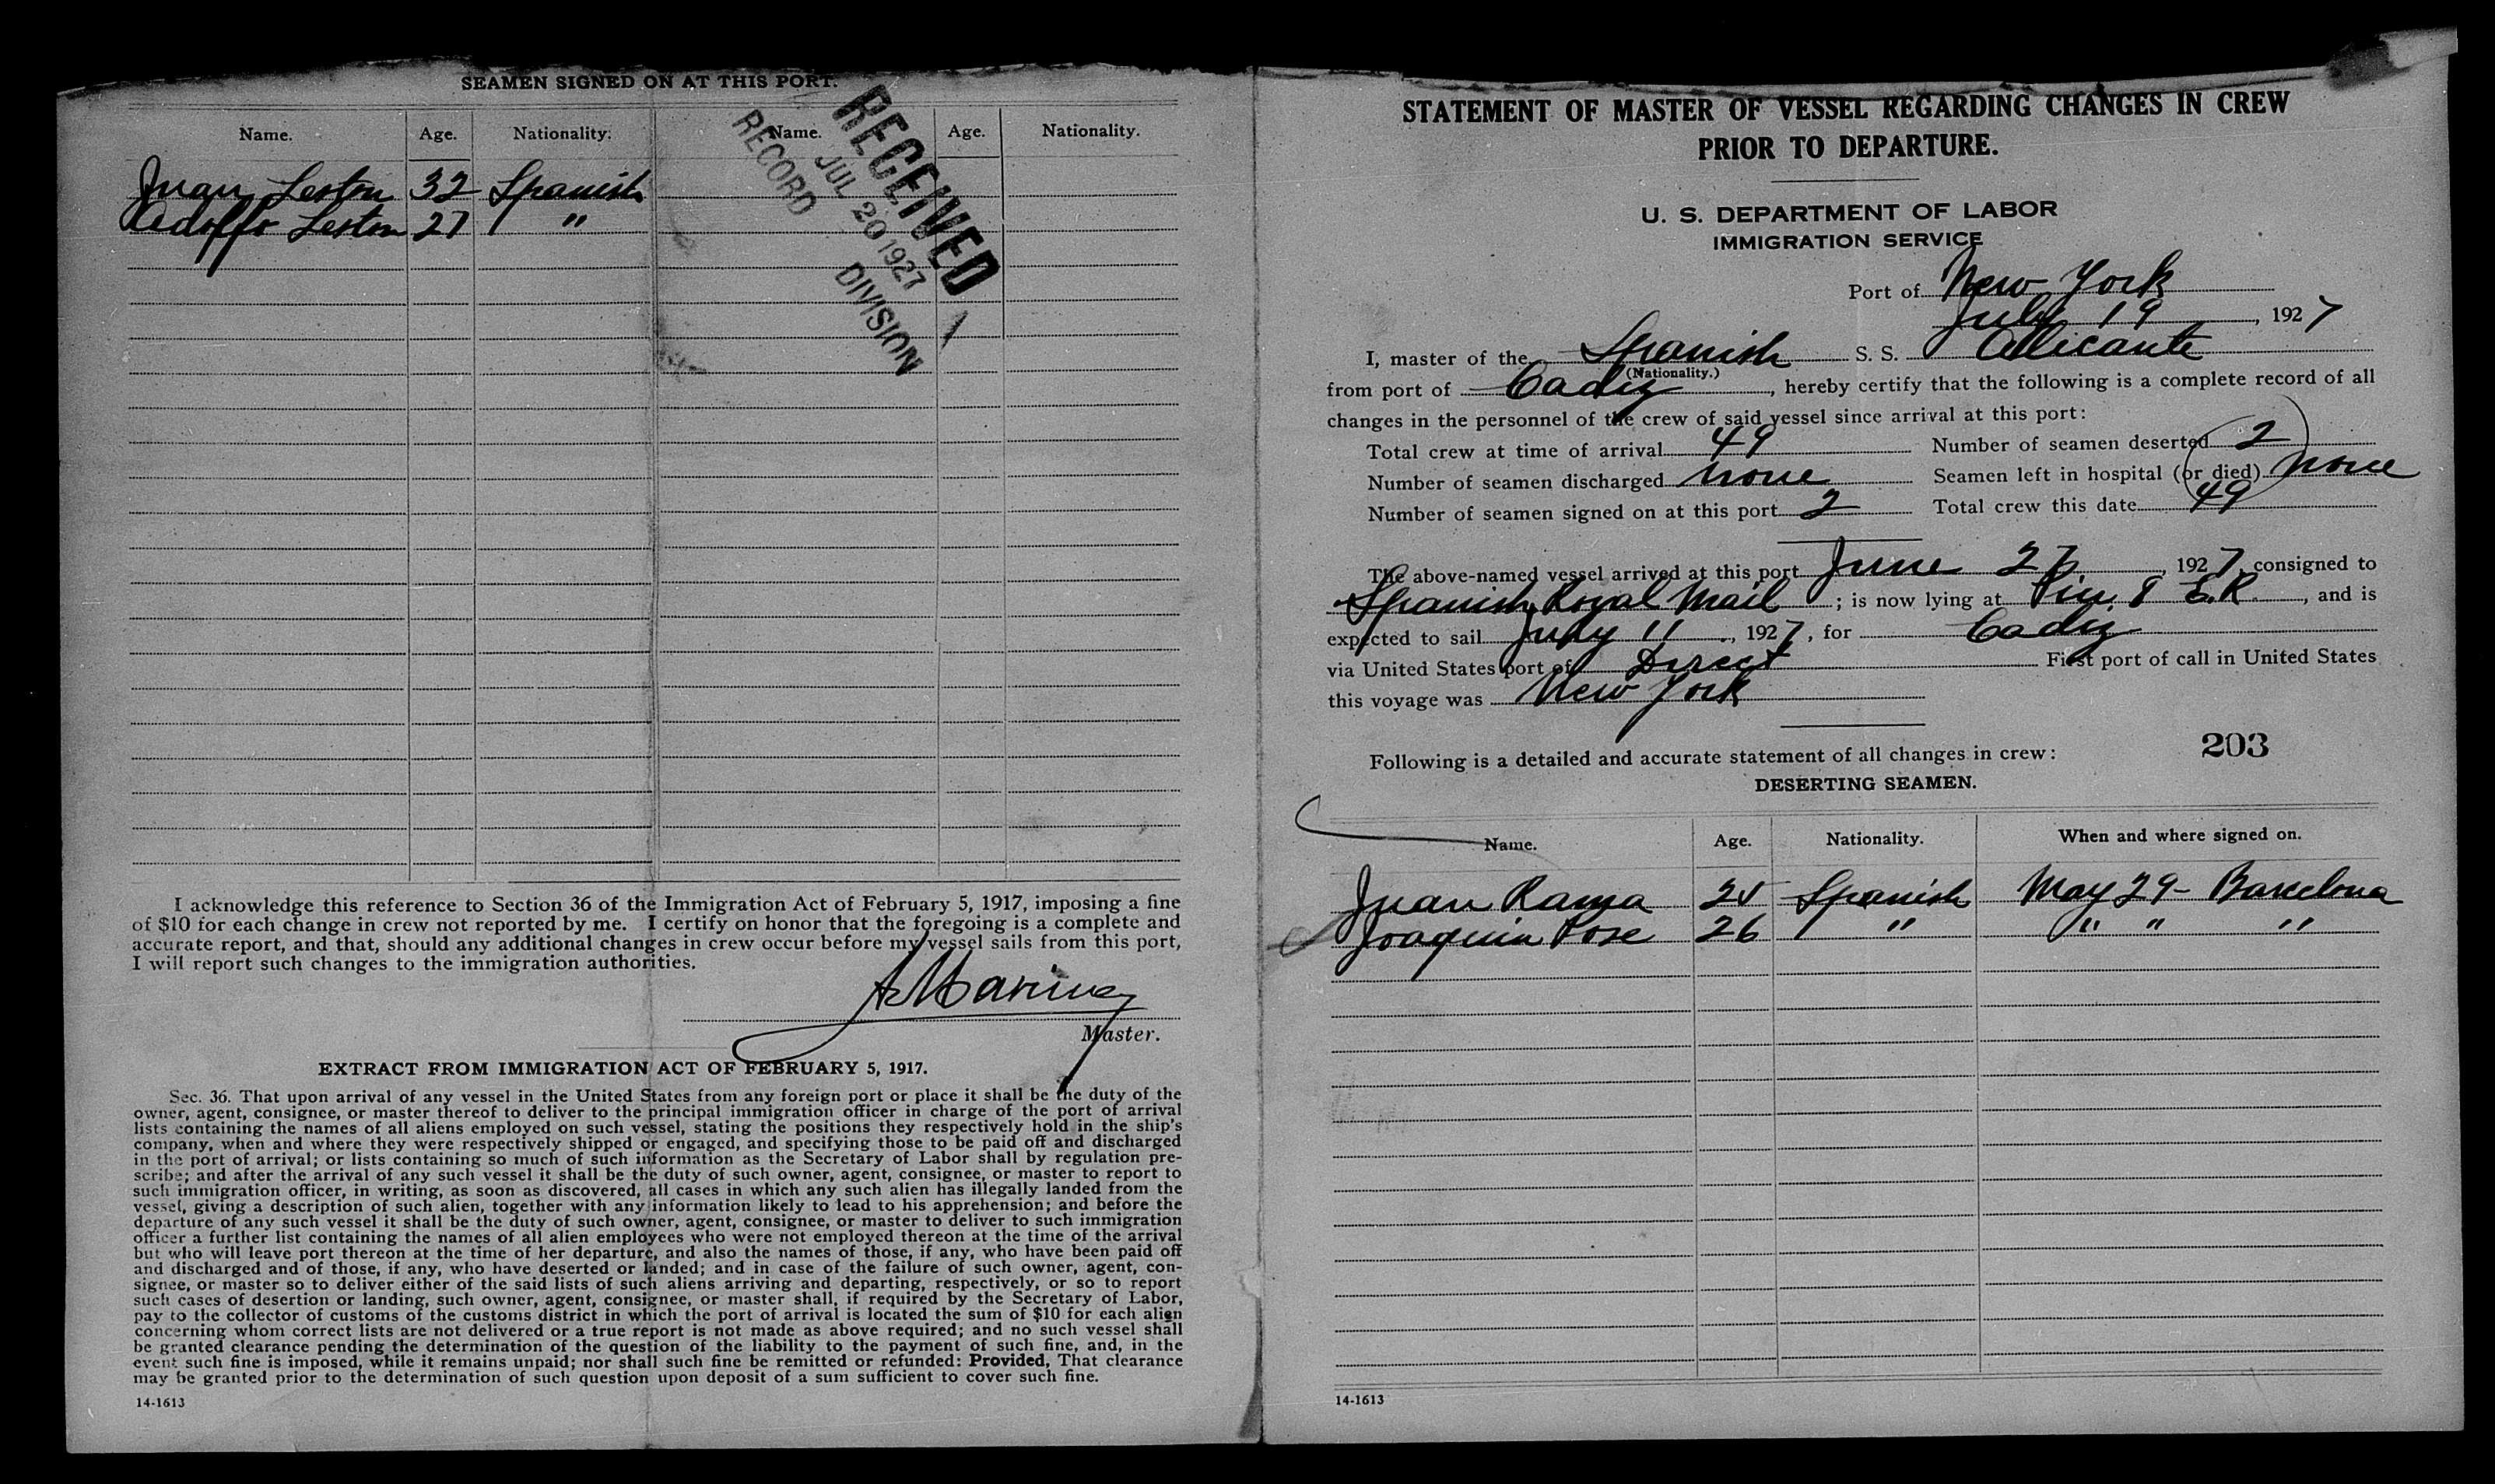 SEAMEN SIGNED ON AT THIS PORT.
Name. Age. Nationality. Name. Age. Nationality.
Juan Leston 32 Spanish
Adolfo Leston 27 "
RECEIVED
JUL 20 1927
RECORD DIVISION
I acknowledge this reference to Section 36 of the Immigration Act of February 5, 1917, imposing a fine
of $10 for each change in crew not reported by me. I certify on honor that the foregoing is a complete and
accurate report, and that, should any additional changes in crew occur before my vessel sails from this port,
I will report such changes to the immigration authorities.
Master.
EXTRACT FROM IMMIGRATION ACT OF FEBRUARY 5, 1917.
Sec. 36. That upon arrival of any vessel in the United States from any foreign port or place it shall be the duty of the
owner, agent, consignee, or master thereof to deliver to the principal immigration officer in charge of the port of arrival
lists containing the names of all aliens employed on such vessel, stating the positions they respectively hold in the ship's
company, when and where they were respectively shipped or engaged, and specifying those to be paid off and discharged
in the port of arrival; or lists containing so much of such information as the Secretary of Labor shall by regulation pre-
scribe; and after the arrival of any such vessel it shall be the duty of such owner, agent, consignee, or master to report to
such immigration officer, in writing, as soon as discovered, all cases in which any such alien has illegally landed from the
vessel, giving a description of such alien, together with any information likely to lead to his apprehension; and before the
departure of any such vessel it shall be the duty of such owner, agent, consignee, or master to deliver to such immigration
officer a further list containing the names of all alien employees who were not employed thereon at the time of the arrival
but who will leave port thereon at the time of her departure, and also the names of those, if any, who have been paid off
and discharged and of those, if any, who have deserted or landed; and in case of the failure of such owner, agent, con-
signee, or master so to deliver either of the said lists of such aliens arriving and departing, respectively, or so to report
such cases of desertion or landing, such owner, agent, consignee, or master shall, if required by the Secretary of Labor,
pay to the collector of customs of the customs district in which the port of arrival is located the sum of $10 for each alien
concerning whom correct lists are not delivered or a true report is not made as above required; and no such vessel shall
be granted clearance pending the determination of the question of the liability to the payment of such fine, and, in the
event such fine is imposed, while it remains unpaid; nor shall such fine be remitted or refunded: Provided, That clearance
may be granted prior to the determination of such question upon deposit of a sum sufficient to cover such fine.
14-1613
STATEMENT OF MASTER OF VESSEL REGARDING CHANGES IN CREW
PRIOR TO DEPARTURE.
U. S. DEPARTMENT OF LABOR
IMMIGRATION SERVICE
Port of New York
July 19, 1927
I, master of the Spanish S. S. Alicante
(Nationality.)
from port of Cadiz, hereby certify that the following is a complete record of all
changes in the personnel of the crew of said vessel since arrival at this port:
Total crew at time of arrival 49 Number of seamen deserted 2
Number of seamen discharged none Seamen left in hospital (or died) none
Number of seamen signed on at this port 2 Total crew this date 49
The above-named vessel arrived at this port June, 1927, consigned to
Spanish Royal Mail; is now lying at Pier 8 E.R., and is
expected to sail July 11, 1927, for Cadiz
via United States port of Direct First port of call in United States
this voyage was New York
203
Following is a detailed and accurate statement of all changes in crew:
DESERTING SEAMEN.
Name. Age. Nationality. When and where signed on.
Juan Rama Spanish May 29 - Barcelona
Joaquin Pose 26 " " " "
14-1613